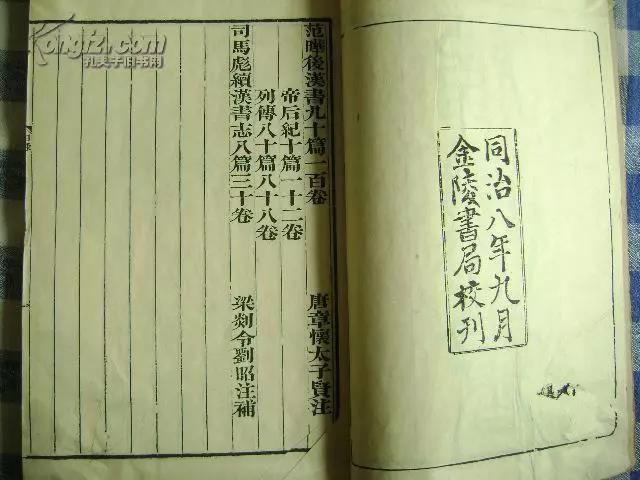 同治八年九月
金陵書局校刊
范曄後漢書九十篇一百卷 唐章懷太子賢注
帝后紀十篇一十二卷
列傳八十篇八十八卷
司馬彪續漢書志八篇三十卷 梁剡令劉昭注補
Kongfz.com
孔夫子旧书网